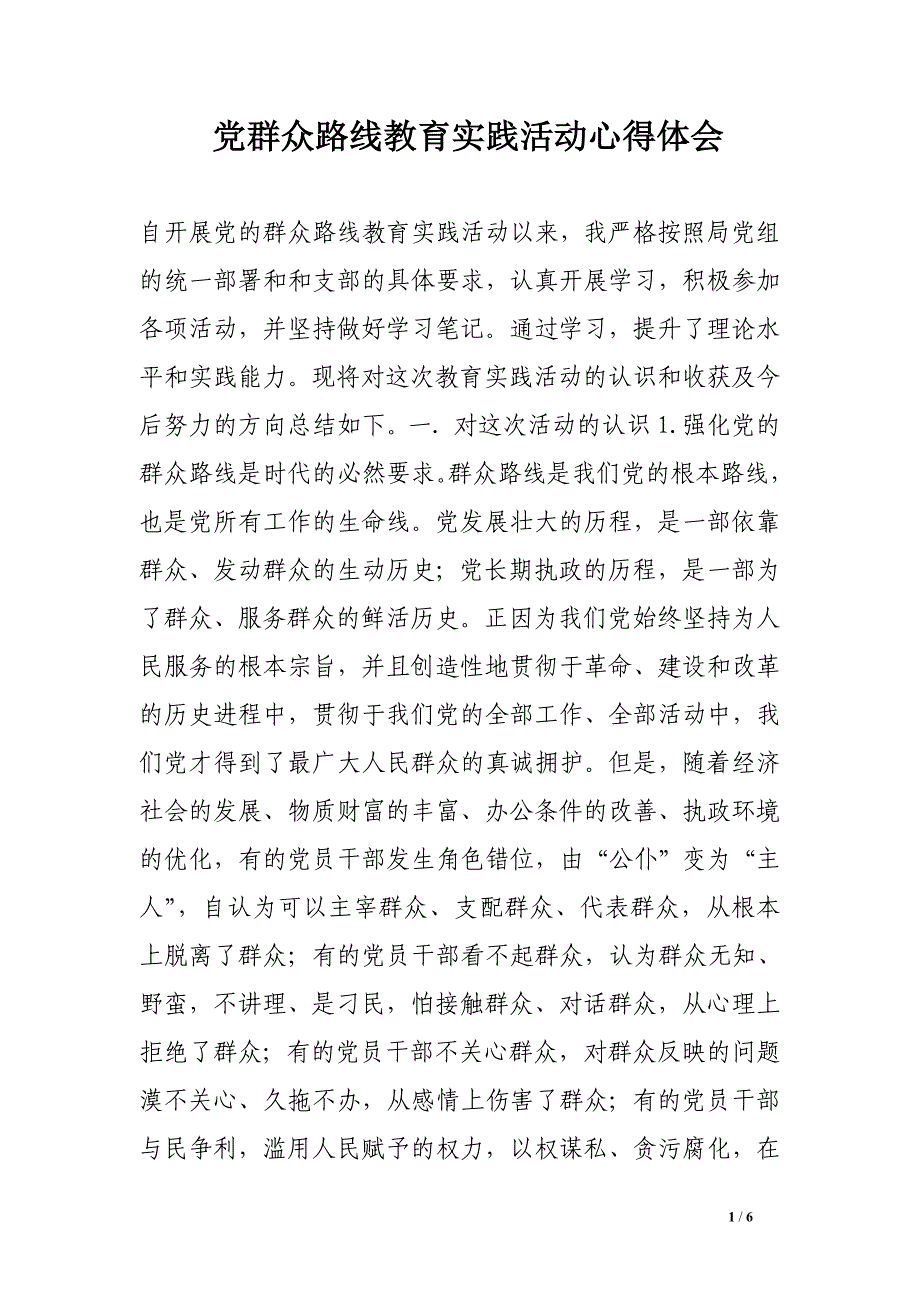 党群众路线教育实践活动心得体会
自开展党的群众路线教育实践活动以来，我严格按照局党组
的统一部署和和支部的具体要求，认真开展学习，积极参加
各项活动，并坚持做好学习笔记。通过学习，提升了理论水
平和实践能力。现将对这次教育实践活动的认识和收获及今
后努力的方向总结如下。一．对这次活动的认识 1.强化党的
群众路线是时代的必然要求。群众路线是我们党的根本路线，
也是党所有工作的生命线。党发展壮大的历程，是一部依靠
群众、发动群众的生动历史；党长期执政的历程，是一部为
了群众、服务群众的鲜活历史。正因为我们党始终坚持为人
民服务的根本宗旨，并且创造性地贯彻于革命、建设和改革
的历史进程中，贯彻于我们党的全部工作、全部活动中，我
们党才得到了最广大人民群众的真诚拥护。但是，随着经济
社会的发展、物质财富的丰富、办公条件的改善、执政环境
的优化，有的党员干部发生角色错位，由“公仆”变为“主
人”，自认为可以主宰群众、支配群众、代表群众，从根本
上脱离了群众；有的党员干部看不起群众，认为群众无知、
野蛮，不讲理、是刁民，怕接触群众、对话群众，从心理上
拒绝了群众；有的党员干部不关心群众，对群众反映的问题
漠不关心、久拖不办，从感情上伤害了群众；有的党员干部
与民争利，滥用人民赋予的权力，以权谋私、贪污腐化，在
1 / 6